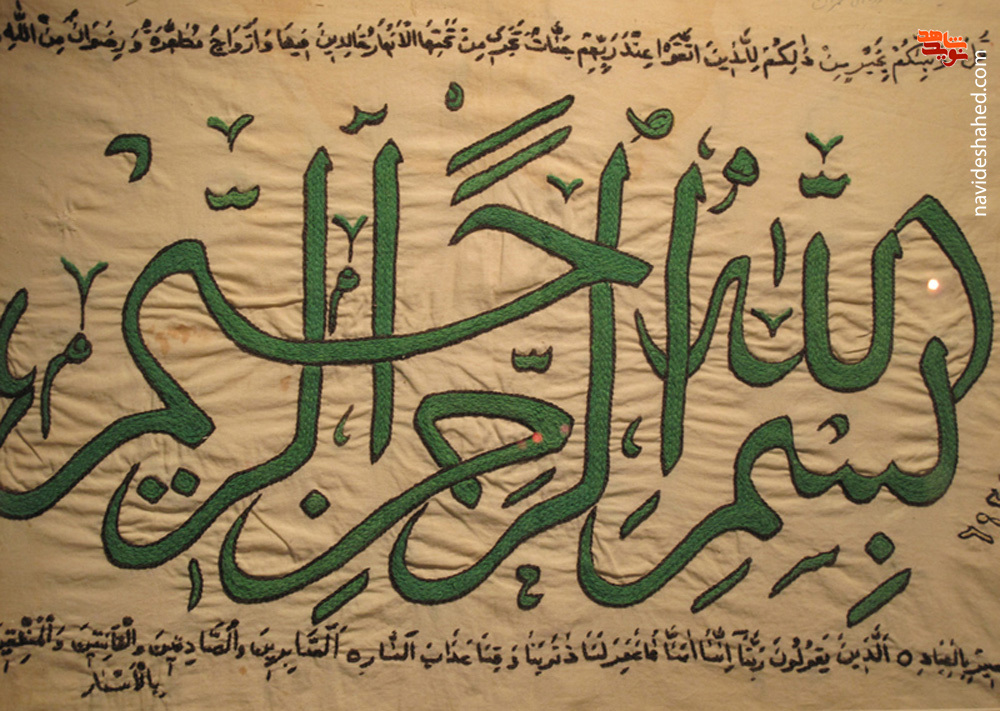 قل أؤنبئكم بخير من ذلكم للذين اتقوا عند ربهم جنات تجري من تحتها الأنهار خالدين فيها وأزواج مطهرة ورضوان من الله
بسم الله الرحمن الرحيم
بالعباد ٥ الذين يقولون ربنا إننا آمنا فاغفر لنا ذنوبنا وقنا عذاب النار ٥ الصابرين والصادقين والقانتين والمنفقين
بالأسحار
نوید شاهد
navideshahed.com